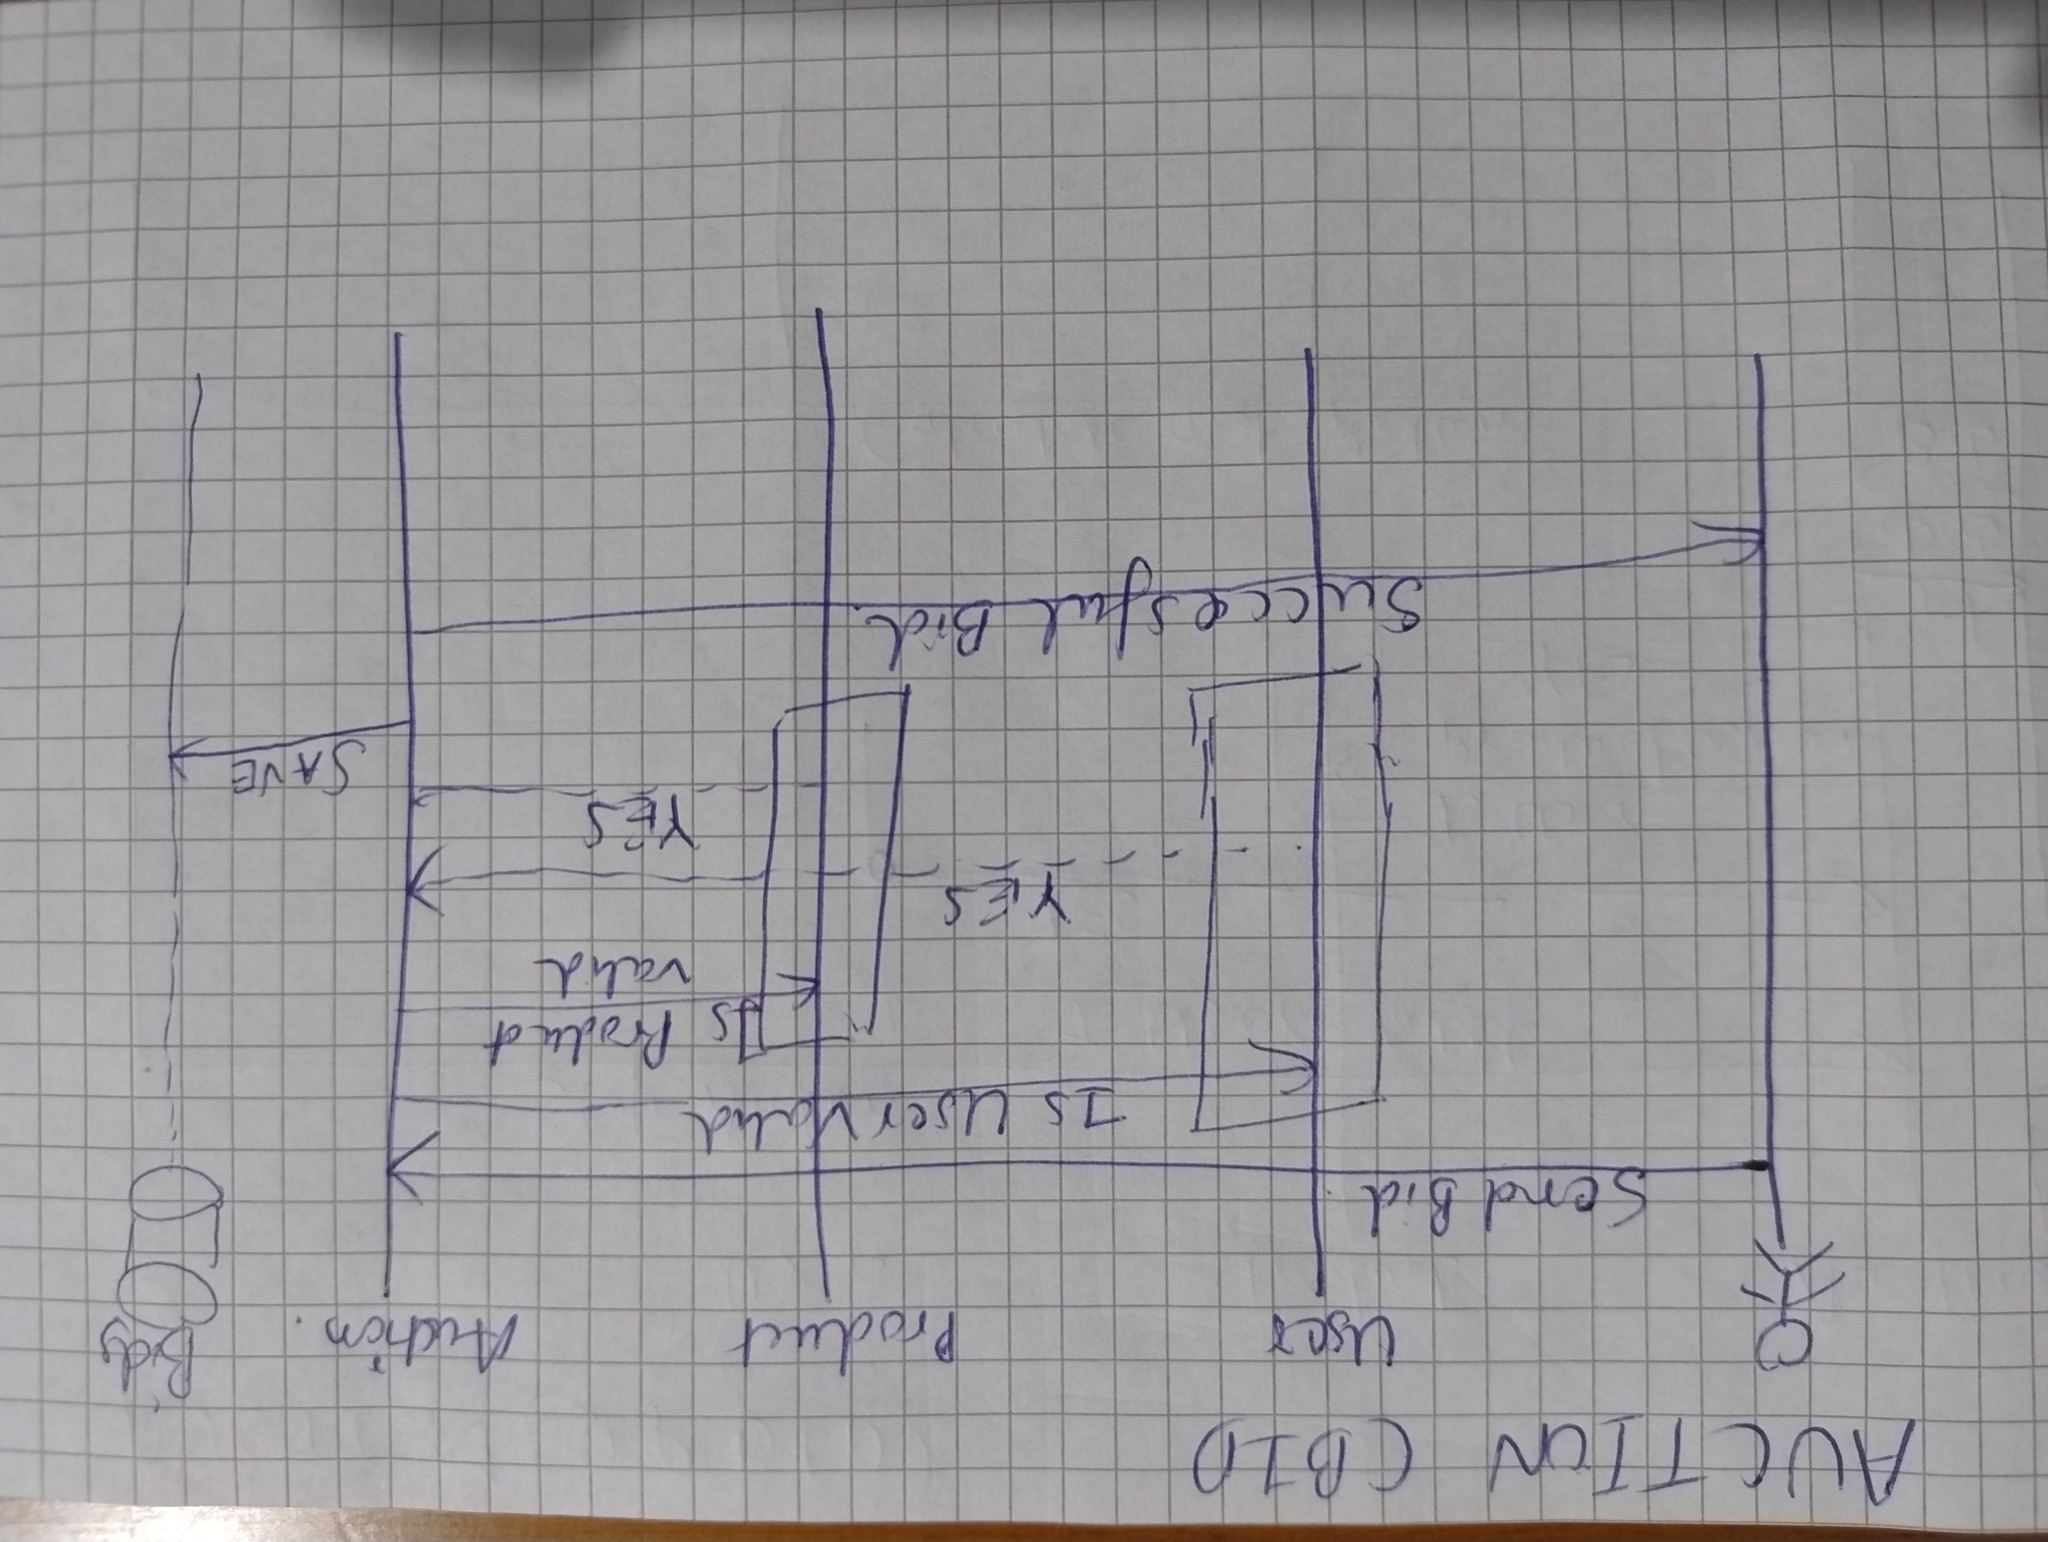 AUCTION (BID
User
Product
Auction.
Bids
Send Bid
Is User Valid
Is Product
valid
YES
YES
SAVE
Succesful Bid.